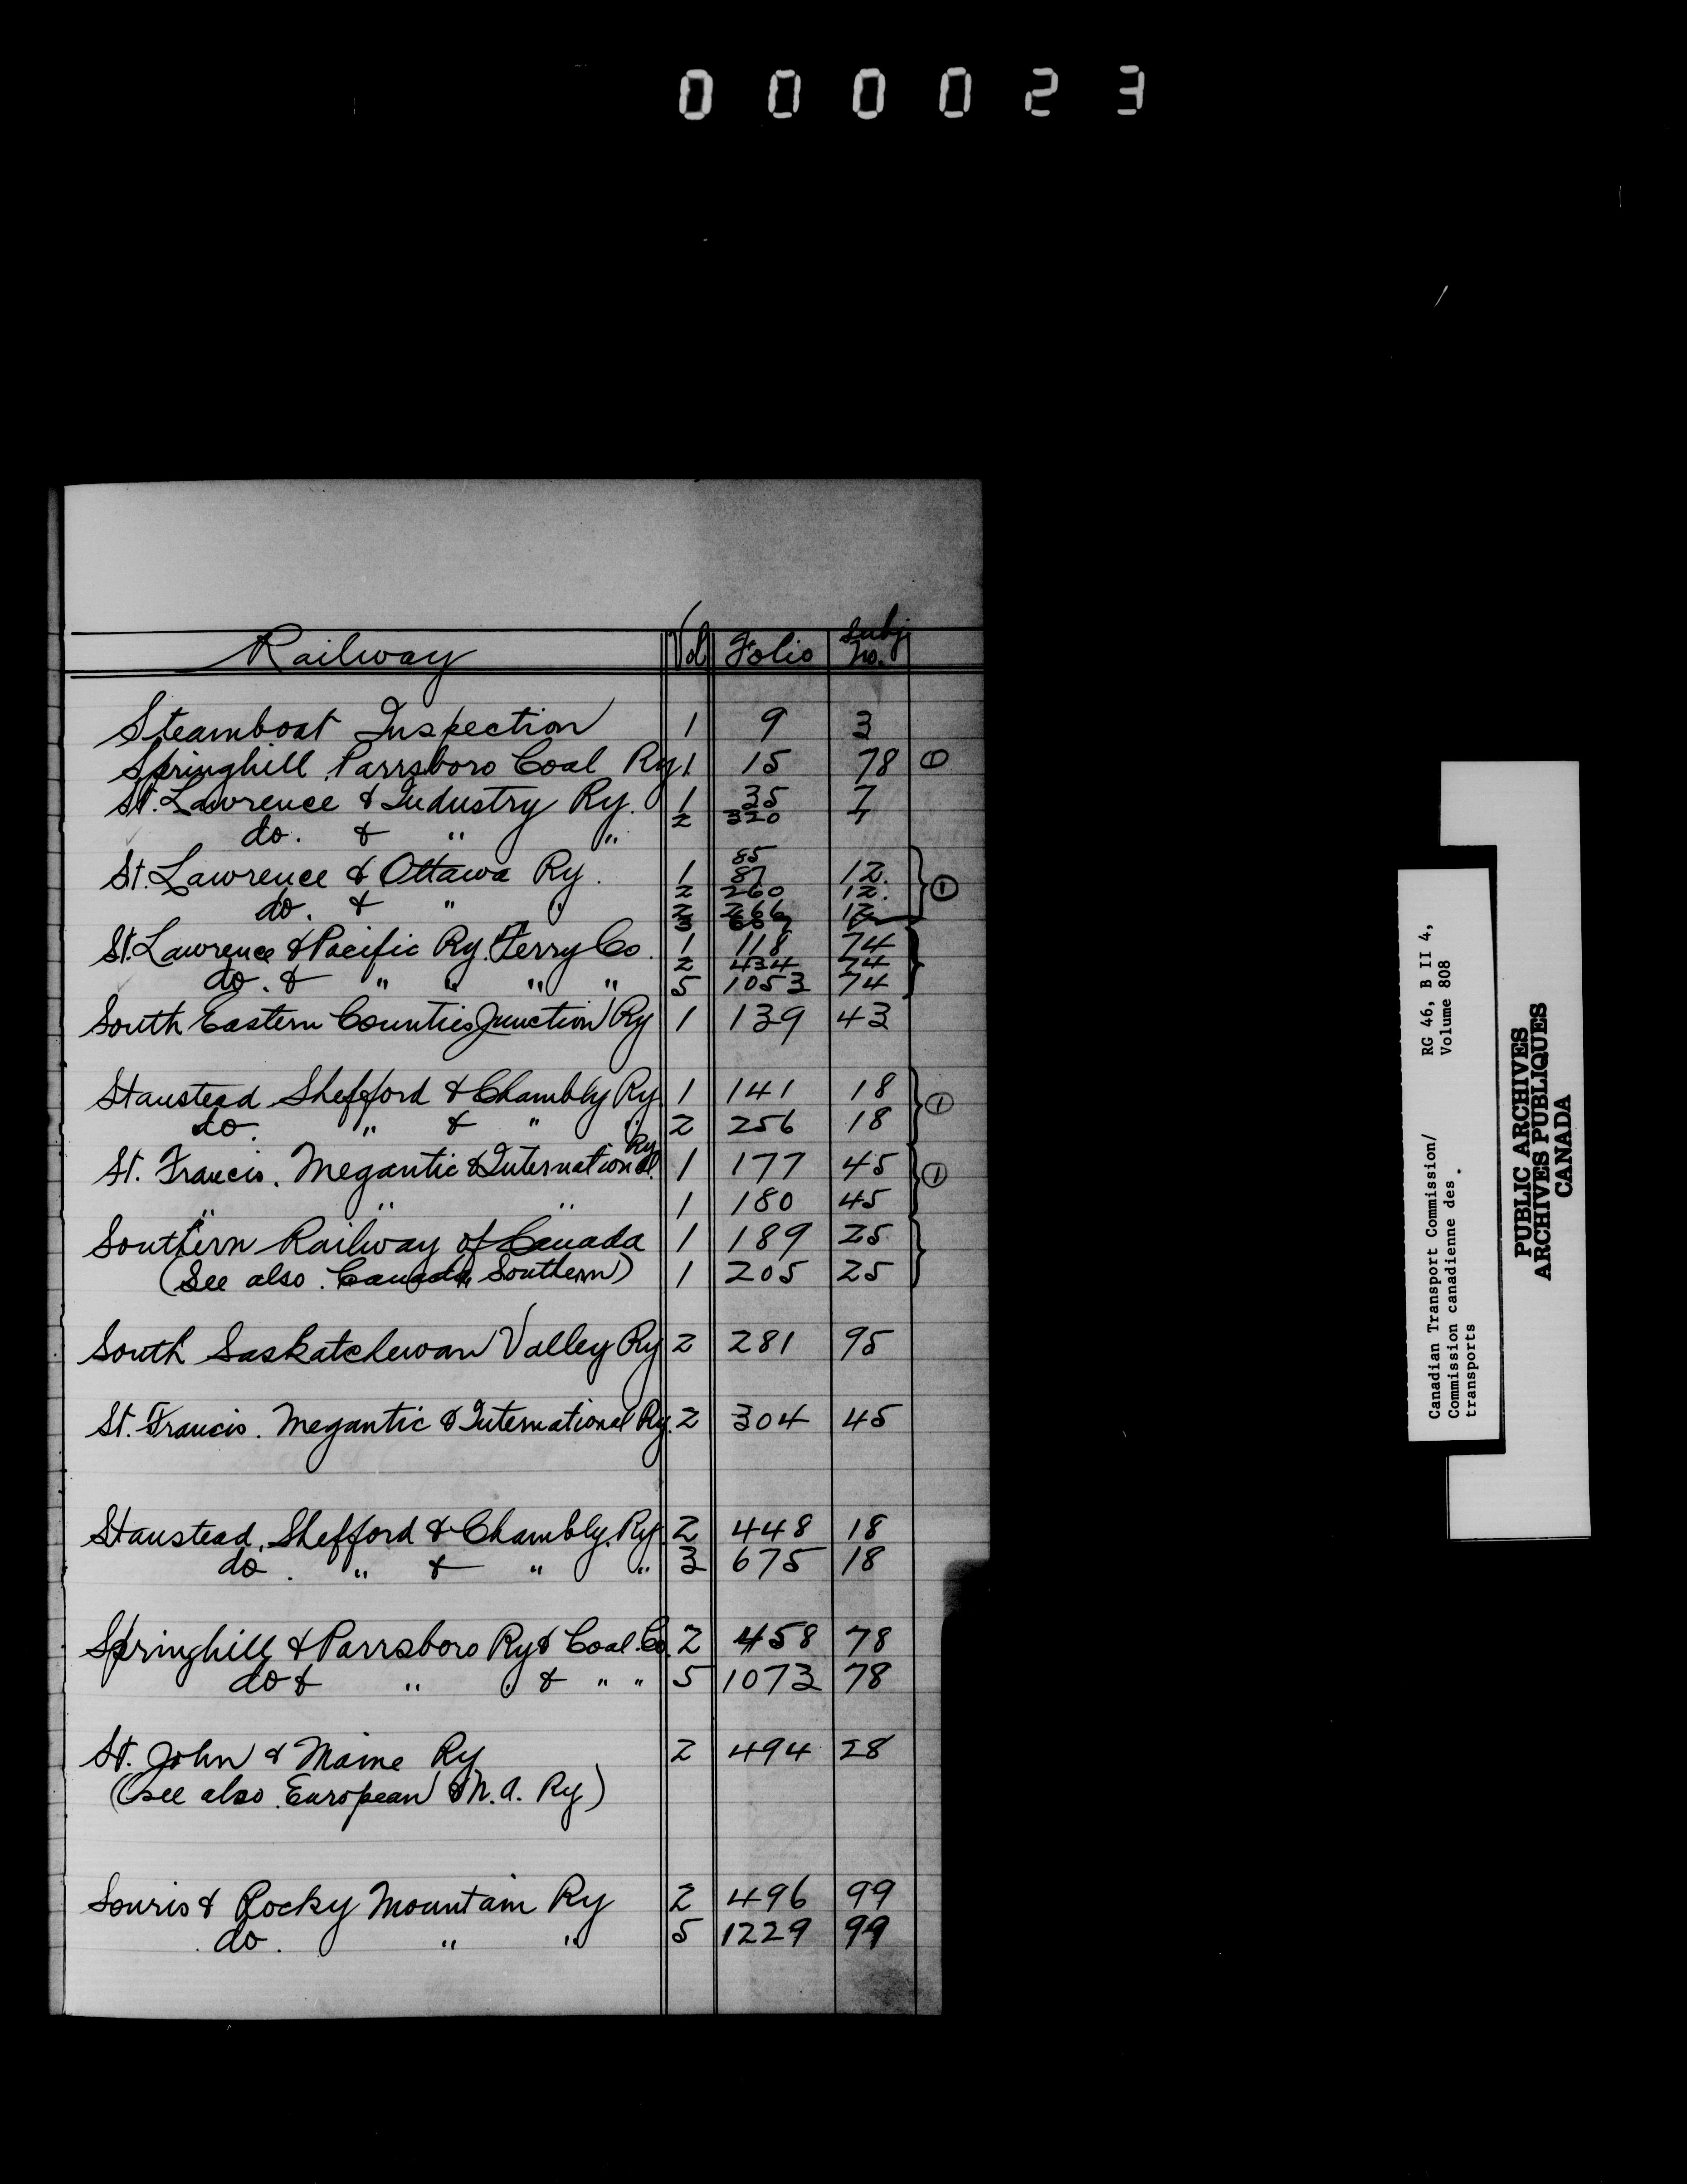 000023
Railway Vol Folio Subj No.
Steamboat Inspection 1 9 3
Springhill Parrsboro Coal Ry 1 15 78 ①
St. Lawrence & Industry Ry. 1 35 7
do. & " " 2 320 7
85
St. Lawrence & Ottawa Ry. 1 87 12.
2 260 12.
do. & " " 2 266 12
3
St. Lawrence & Pacific Ry. Ferry Co. 1 118 74
2 434 74
do. & " " " " 5 1053 74
South Eastern Counties Junction Ry 1 139 43
Stanstead Shefford & Chambly Ry. 1 141 18 ①
do. " & " " 2 256 18
St. Francis. Megantic & International Ry. 1 177 45 ①
" " " 1 180 45
Southern Railway of Canada 1 189 25
(See also. Canada Southern) 1 205 25
South Saskatchewan Valley Ry 2 281 95
St. Francis. Megantic & International Ry. 2 304 45
Stanstead, Shefford & Chambly. Ry. 2 448 18
do. " & " " 3 675 18
Springhill & Parrsboro Ry & Coal Co. 2 458 78
do & " " & " " 5 1073 78
St. John & Maine Ry 2 494 28
(See also. European & N.A. Ry)
Souris & Rocky Mountain Ry 2 496 99
do. " " 5 1229 99
Canadian Transport Commission/ RG 46, B II 4,
Commission canadienne des Volume 808
transports
PUBLIC ARCHIVES
ARCHIVES PUBLIQUES
CANADA